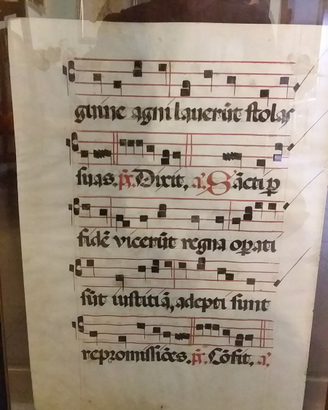 guine agni lauerūt stolas
suas. p̄s. Dixit. a. Sācti ꝑ
fidē vicerūt regna oꝑati
sūt iustitiā, adepti sunt
repromissiōes. p̄s. Cōfit. a.